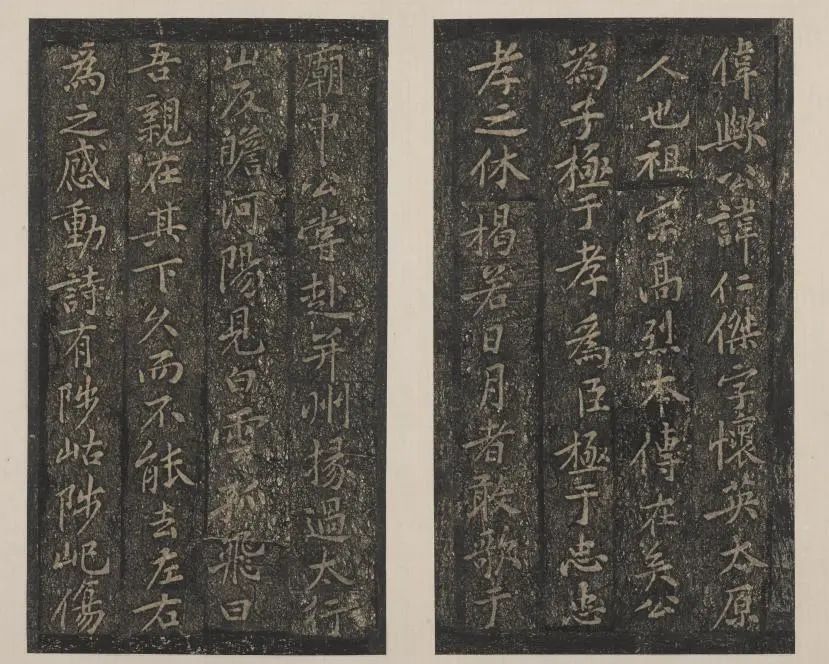 偉歟公諱仁傑字懷英太原
人也祖宗高烈本傳在矣公
為子極于孝為臣極于忠忠
孝之休揭若日月者敢歌于
廟中公嘗赴并州掾過太行
山反瞻河陽見白雲孤飛曰
吾親在其下久而不能去左右
為之感動詩有陟岵陟屺傷